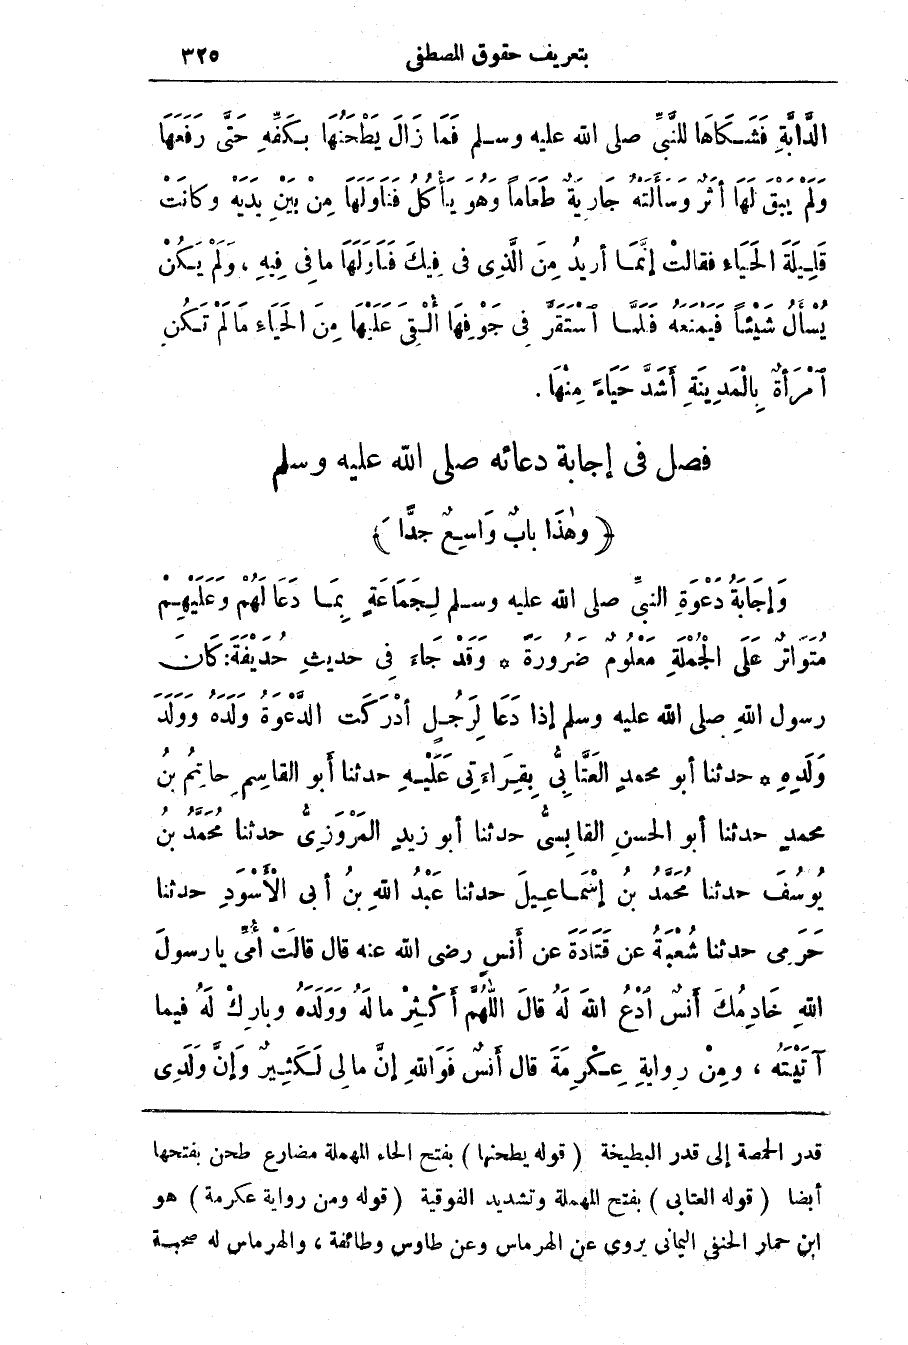 بتعريف حقوق المصطفى ٣٢٥
الدَّابَّةِ فَشَكَاهَا للنَّبِيِّ صلى الله عليه وسلم فَمَا زَالَ يَطْحَنُهَا بِكَفِّهِ حَتَّى رَفَعَهَا
وَلَمْ يَبْقَ لَهَا أَثَرٌ وَسَأَلَتْهُ جَارِيَةٌ طَعَاماً وَهُوَ يَأْكُلُ فَنَاوَلَهَا مِنْ بَيْنِ يَدَيْهِ وكانَتْ
قَلِيلَةَ الحَيَاءِ فقالتْ إنَّمَا أريدُ مِنَ الَّذِى فى فِيكَ فَنَاوَلَهَا ما فى فِيهِ ، وَلَمْ يَكُنْ
يُسْأَلُ شَيْئاً فَيَمْنَعَهُ فَلَمَّا ٱسْتَقَرَّ فى جَوْفِهَا أُلْقِىَ عَلَيْهَا مِنَ الحَيَاءِ مَا لَمْ تَكُنِ
ٱمْرَأَةٌ بِالْمَدِينَةِ أَشَدَّ حَيَاءً مِنْهَا .
فصل فى إجابة دعائه صلى الله عليه وسلم
﴿ وهٰذَا بابٌ وَاسِعٌ جدًّا ﴾
وَإِجَابَةُ دَعْوَةِ النبىِّ صلى الله عليه وسلم لِجَمَاعَةٍ بِمَا دَعَا لَهُمْ وَعَلَيْهِمْ
مُتَوَاتِرٌ عَلَى الجُمْلَةِ مَعْلُومٌ ضَرُورَةً * وَقَدْ جَاءَ فى حديثِ حُذَيْفَةَ: كَانَ
رسول اللهِ صلى الله عليه وسلم إذا دَعَا لِرَجُلٍ أدْرَكَتِ الدَّعْوَةُ وَلَدَهُ وَوَلَدَ
وَلَدِهِ * حدثنا أبو محمدٍ العَتَّابِىُّ بِقِرَاءَتِى عَلَيْهِ حدثنا أبو القاسِمِ حاتِمُ بنُ
محمدٍ حدثنا أبو الحسنِ القابِسىُّ حدثنا أبو زيدٍ المَرْوَزِىُّ حدثنا مُحَمَّدُ بنُ
يُوسُفَ حدثنا مُحَمَّدُ بنُ إسْمَاعِيلَ حدثنا عَبْدُ اللهِ بنُ أبى الأَسْوَدِ حدثنا
حَرَمِى حدثنا شُعْبَةُ عن قَتَادَةَ عن أَنَسٍ رضى الله عنه قال قالَتْ أُمِّى يا رسولَ
اللهِ خَادِمُكَ أَنَسٌ ٱدْعُ اللهَ لَهُ قالَ اللّٰهُمَّ أَكْثِرْ مالَهُ وَوَلَدَهُ وبارِكْ لَهُ فيما
آتَيْتَهُ ، ومِنْ رِوايةِ عِكْرِمَةَ قال أَنَسٌ فَوَاللهِ إنَّ مالِى لَكَثِيرٌ وَإنَّ وَلَدِى
قدر الحمصة إلى قدر البطيخة ( قوله يطحنها ) بفتح الحاء المهملة مضارع طحن بفتحها
أيضا ( قوله العتابى ) بفتح المهملة وتشديد الفوقية ( قوله ومن رواية عكرمة ) هو
ابن حمار الحنفى اليمانى يروى عن الهرماس وعن طاوس وطائفة ، والهرماس له صحبة